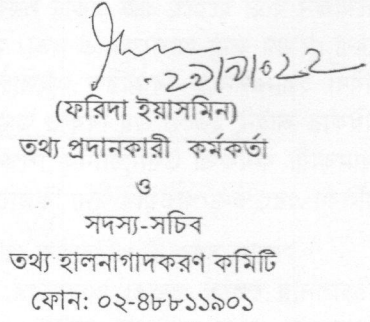 (ফরিদা ইয়াসমিন)
তথ্য প্রদানকারী কর্মকর্তা
ও
সদস্য-সচিব
তথ্য হালনাগাদকরণ কমিটি
ফোন: ০২-৪৮৮১১৯০১